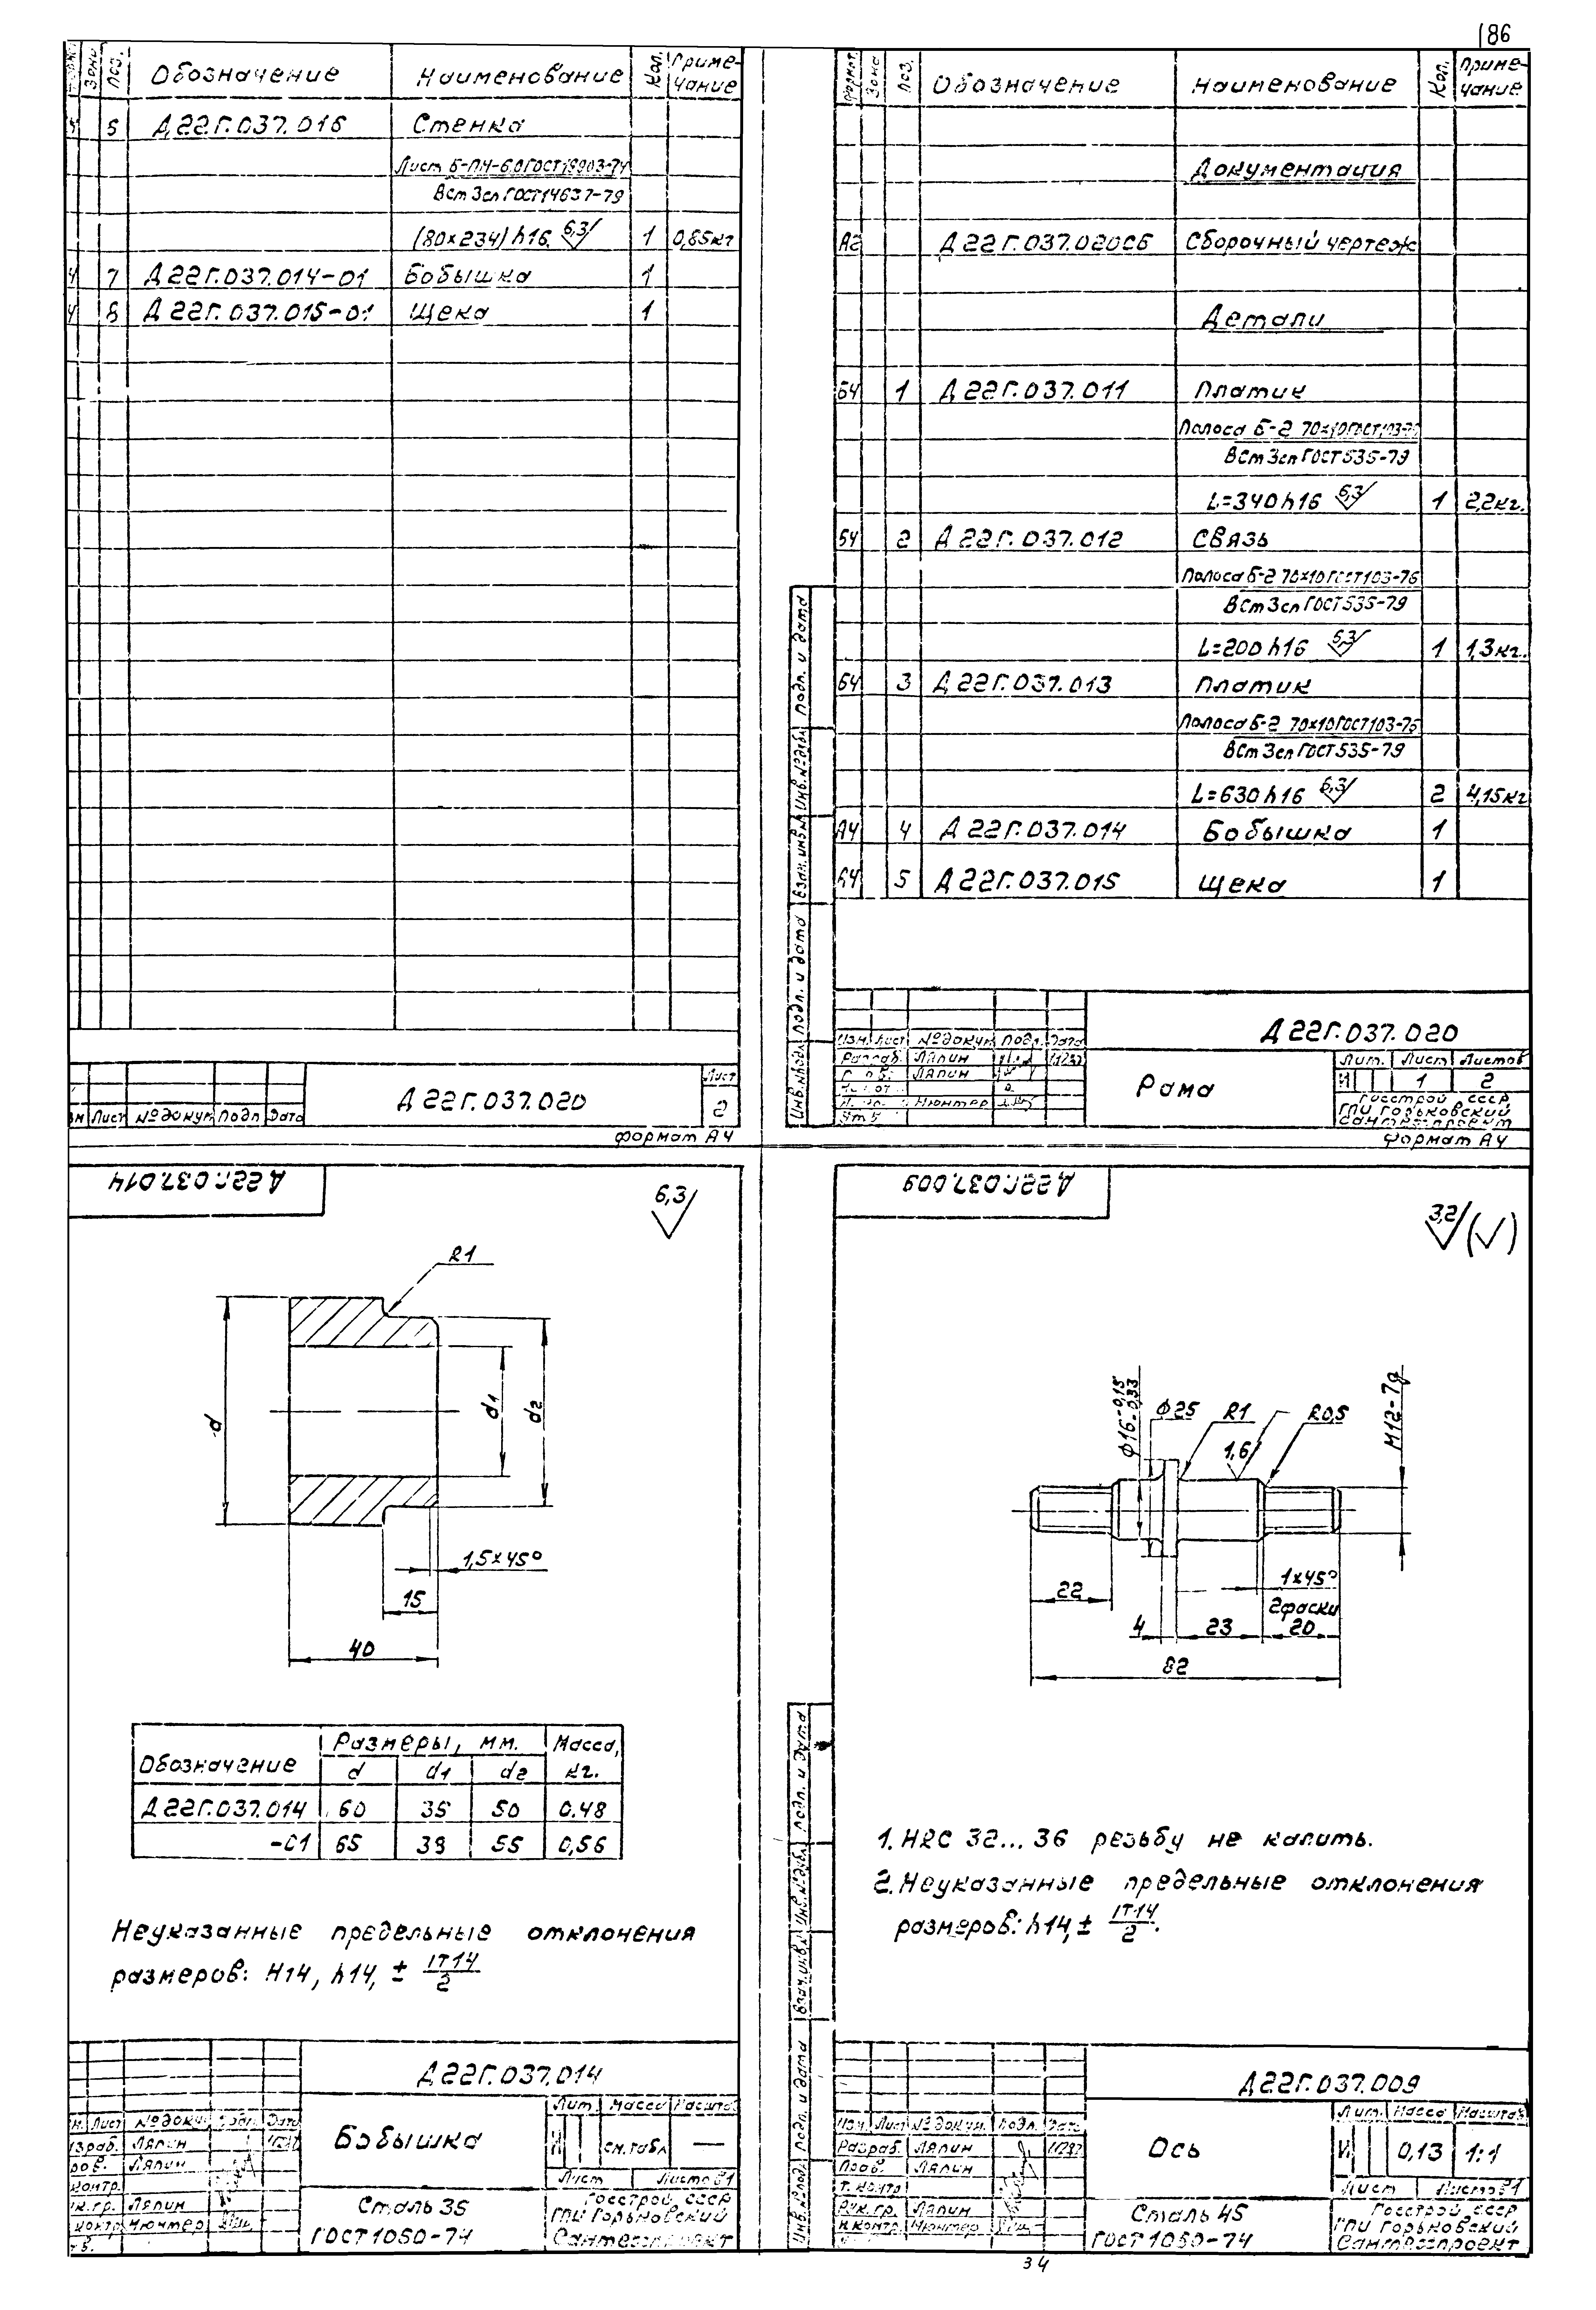 186
Зона Поз. Обозначение Наименование Кол. Приме-
чание
5 Д22Г.037.016 Стенка
Лист Б-ПН-6.0 ГОСТ19903-74
ВСт3сп ГОСТ14637-79
(80×234)h16. 6,3 1 0,85кг
4 7 Д22Г.037.014-01 Бобышка 1
4 8 Д22Г.037.015-01 Щека 1
Изм Лист №докум Подп Дата
Д22Г.037.020
Лист
2
Формат А4
Формат. Зона Поз. Обозначение Наименование Кол. Приме-
чание
Документация
А2 Д22Г.037.020СБ Сборочный чертеж
Детали
Б4 1 Д22Г.037.011 Платик
Полоса Б-2 70×10 ГОСТ103-76
ВСт3сп ГОСТ535-79
L=340h16 6,3 1 2,2кг.
Б4 2 Д22Г.037.012 Связь
Полоса Б-2 70×10 ГОСТ103-76
ВСт3сп ГОСТ535-79
L=200h16 6,3 1 1,3кг.
Б4 3 Д22Г.037.013 Платик
Полоса Б-2 70×10 ГОСТ103-76
ВСт3сп ГОСТ535-79
L=630h16 6,3 2 4,15кг
А4 4 Д22Г.037.014 Бобышка 1
А4 5 Д22Г.037.015 Щека 1
Инв.№подл. Подп. и дата Взам.инв.№ Инв.№дубл. Подп. и дата
Д22Г.037.020
Изм. Лист №докум. Подп. Дата
Разраб. Ляпин
Ляпин
Нюнтер
Рама
Лит. Лист Листов
И 1 2
Госстрой СССР
ГПИ Горьковский
Сантехпроект
Формат А4
Д22Г.037.014
6,3
R1
d
d1
d2
1,5×45°
15
40
Обозначение Размеры, мм. Масса,
кг.
d d1 d2
Д22Г.037.014 60 35 50 0.48
-01 65 38 55 0,56
Неуказанные предельные отклонения
размеров: H14, h14, ± IT14/2
Д22Г.037.014
Лист №докум. Подп. Дата
Разраб. Ляпин
Пров. Ляпин
Рук.гр. Ляпин
Н.контр Нюнтер
Бобышка
Лит. Масса Масштаб
И см.табл —
Лист Листов 1
Сталь 35
ГОСТ1050-74
Госстрой СССР
ГПИ Горьковский
Сантехпроект
Д22Г.037.009
3,2 (✓)
ф16 -0,15 -0,33
ф25
R1
1,6
R0,5
М12-7g
22
1×45°
2фаски
4
23
20
82
1. HRC 32...36 резьбу не калить.
2. Неуказанные предельные отклонения
размеров: h14, ± IT14/2.
Инв.№подл. Подп. и дата Взам.инв.№ Инв.№дубл. Подп. и дата
Д22Г.037.009
Изм. Лист №докум. Подп. Дата
Разраб. Ляпин
Пров. Ляпин
Т.контр
Рук.гр. Ляпин
Н.контр. Нюнтер
Ось
Лит. Масса Масштаб
И 0,13 1:1
Лист Листов 1
Сталь 45
ГОСТ1050-74
Госстрой СССР
ГПИ Горьковский
Сантехпроект
34